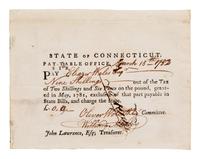 STATE OF CONNECTICUT.
PAY-TABLE OFFICE, March 15th 1782
SIR,
PAY Eleazr Wales Esqr
Nine Shillings out of the Tax
of Two Shillings and Six Pence on the pound, granted
in May, 1781, exclusive of that part payable in
State Bills, and charge the State.
Oliver Wolcott Committee.
William
John Lawrence, Esq; Treasurer.